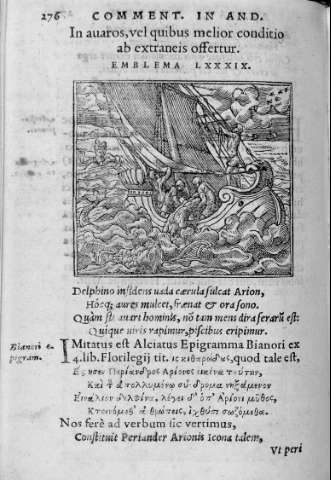 276 COMMENT. IN AND.
In auaros, vel quibus melior conditio
ab extraneis offertur.
EMBLEMA LXXXIX.
Delphino insidens uada cærula sulcat Arion,
Hócq; aures mulcet, frænat & ora sono.
Quàm sit auari hominis, nõ tam mens dira ferarũ est:
Quique uiris rapimur, piscibus eripimur.
Bianori e-
pigram.
IMitatus est Alciatus Epigramma Bianori ex
4. lib. Florilegij tit. εἰς κιθαρῳδούς, quod tale est,
Περίανδρος Ἀρίονος εἰκόνα
ἀπολλυμένῳ
λέγει μῦθος,
Κτεινόμεθ' ἀνθρώποις, ἰχθύσι σωζόμεθα.
Nos ferè ad verbum sic vertimus,
Constituit Periander Arionis Icona talem,
Vt peri